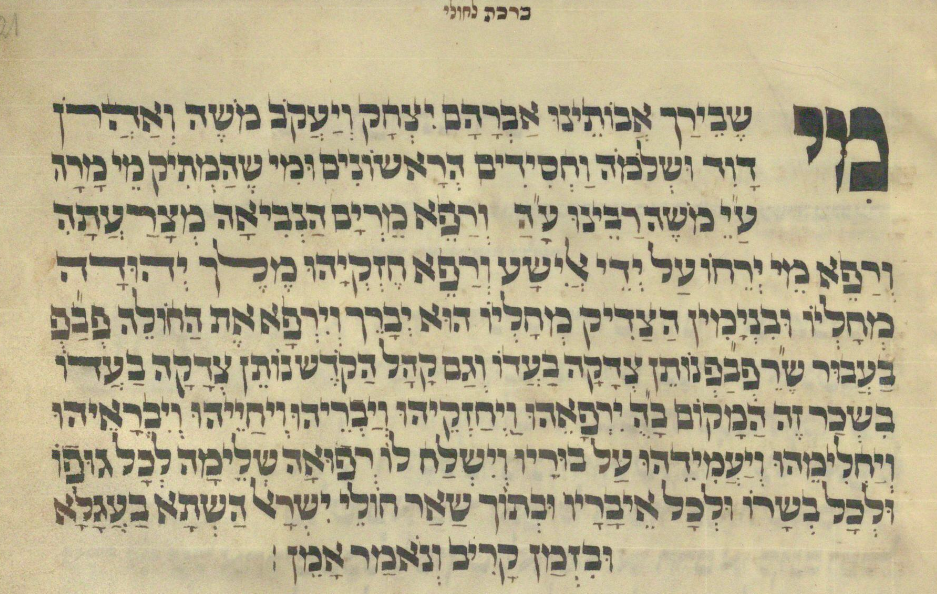 ברכת לחולי
מִי שֶׁבֵּירַךְ אֲבוֹתֵינוּ אַבְרָהָם יִצְחָק וְיַעֲקֹב מֹשֶׁה וְאַהֲרֹן
דָּוִד וּשְׁלֹמֹה וַחֲסִידִים הָרִאשׁוֹנִים וּמִי שֶׁהִמְתִּיק מֵי מָרָה
ע״י מֹשֶׁה רַבֵּינוּ ע״ה וְרִפֵּא מִרְיָם הַנְּבִיאָה מִצָּרַעְתָּהּ
וְרִפֵּא מֵי יְרִיחוֹ עַל יְדֵי אֱלִישָׁע וְרִפֵּא חִזְקִיָּהוּ מֶלֶךְ יְהוּדָה
מֵחָלְיוֹ וּבִנְיָמִין הַצַּדִּיק מֵחָלְיוֹ הוּא יְבָרֵךְ וִירַפֵּא אֶת הַחוֹלֶה פב״פ
בַּעֲבוּר שֶׁרפב״פ נוֹתֵן צְדָקָה בַּעֲדוֹ וְגַם קְהַל הַקֹּדֶשׁ נוֹתֵן צְדָקָה בַּעֲדוֹ
בִּשְׂכַר זֶה הַמָּקוֹם ב״ה יִרְפָּאֵהוּ וִיחַזְּקֵיהוּ וְיַבְרִיהוּ וִיחַיֵּיהוּ וְיִבְרָאֵיהוּ
וְיַחֲלִימֵהוּ וְיַעֲמִידֵהוּ עַל בּוּרְיוֹ וְיִשְׁלַח לוֹ רְפוּאָה שְׁלֵימָה לְכָל גּוּפוֹ
וּלְכָל בְּשָׂרוֹ וּלְכָל אֵיבָרָיו וּבְתוֹךְ שְׁאָר חוֹלֵי יִשְׂרָאֵל הַשְׁתָּא בַּעֲגָלָא
וּבִזְמַן קָרִיב וְנֹאמַר אָמֵן׃